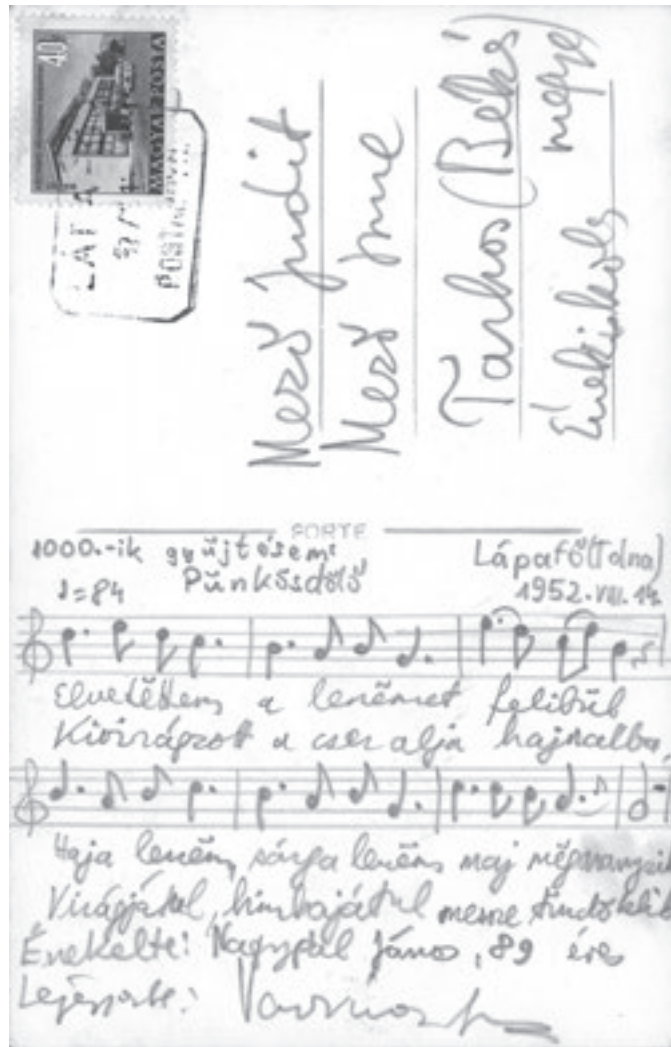 40
MAGYAR POSTA
LÁPA
POSTAI
Mező Judit
Mező Imre
Tarhos (Békés megye)
Énekiskola
FORTE
1000.-ik gyűjtésem: Lápafő (Tolna)
Pünkösdölő 1952. VIII. 14.
♩=84
Elvetëttem a lenëmet felibül
Kivirágzott a cser alja hajnalba,
Haja lenëm, sárga lenëm, maj mëg
Virágjátul, himbajátul messze tündöklik
Énekelte: Nagypál János, 89 éves
Lejegyezte: